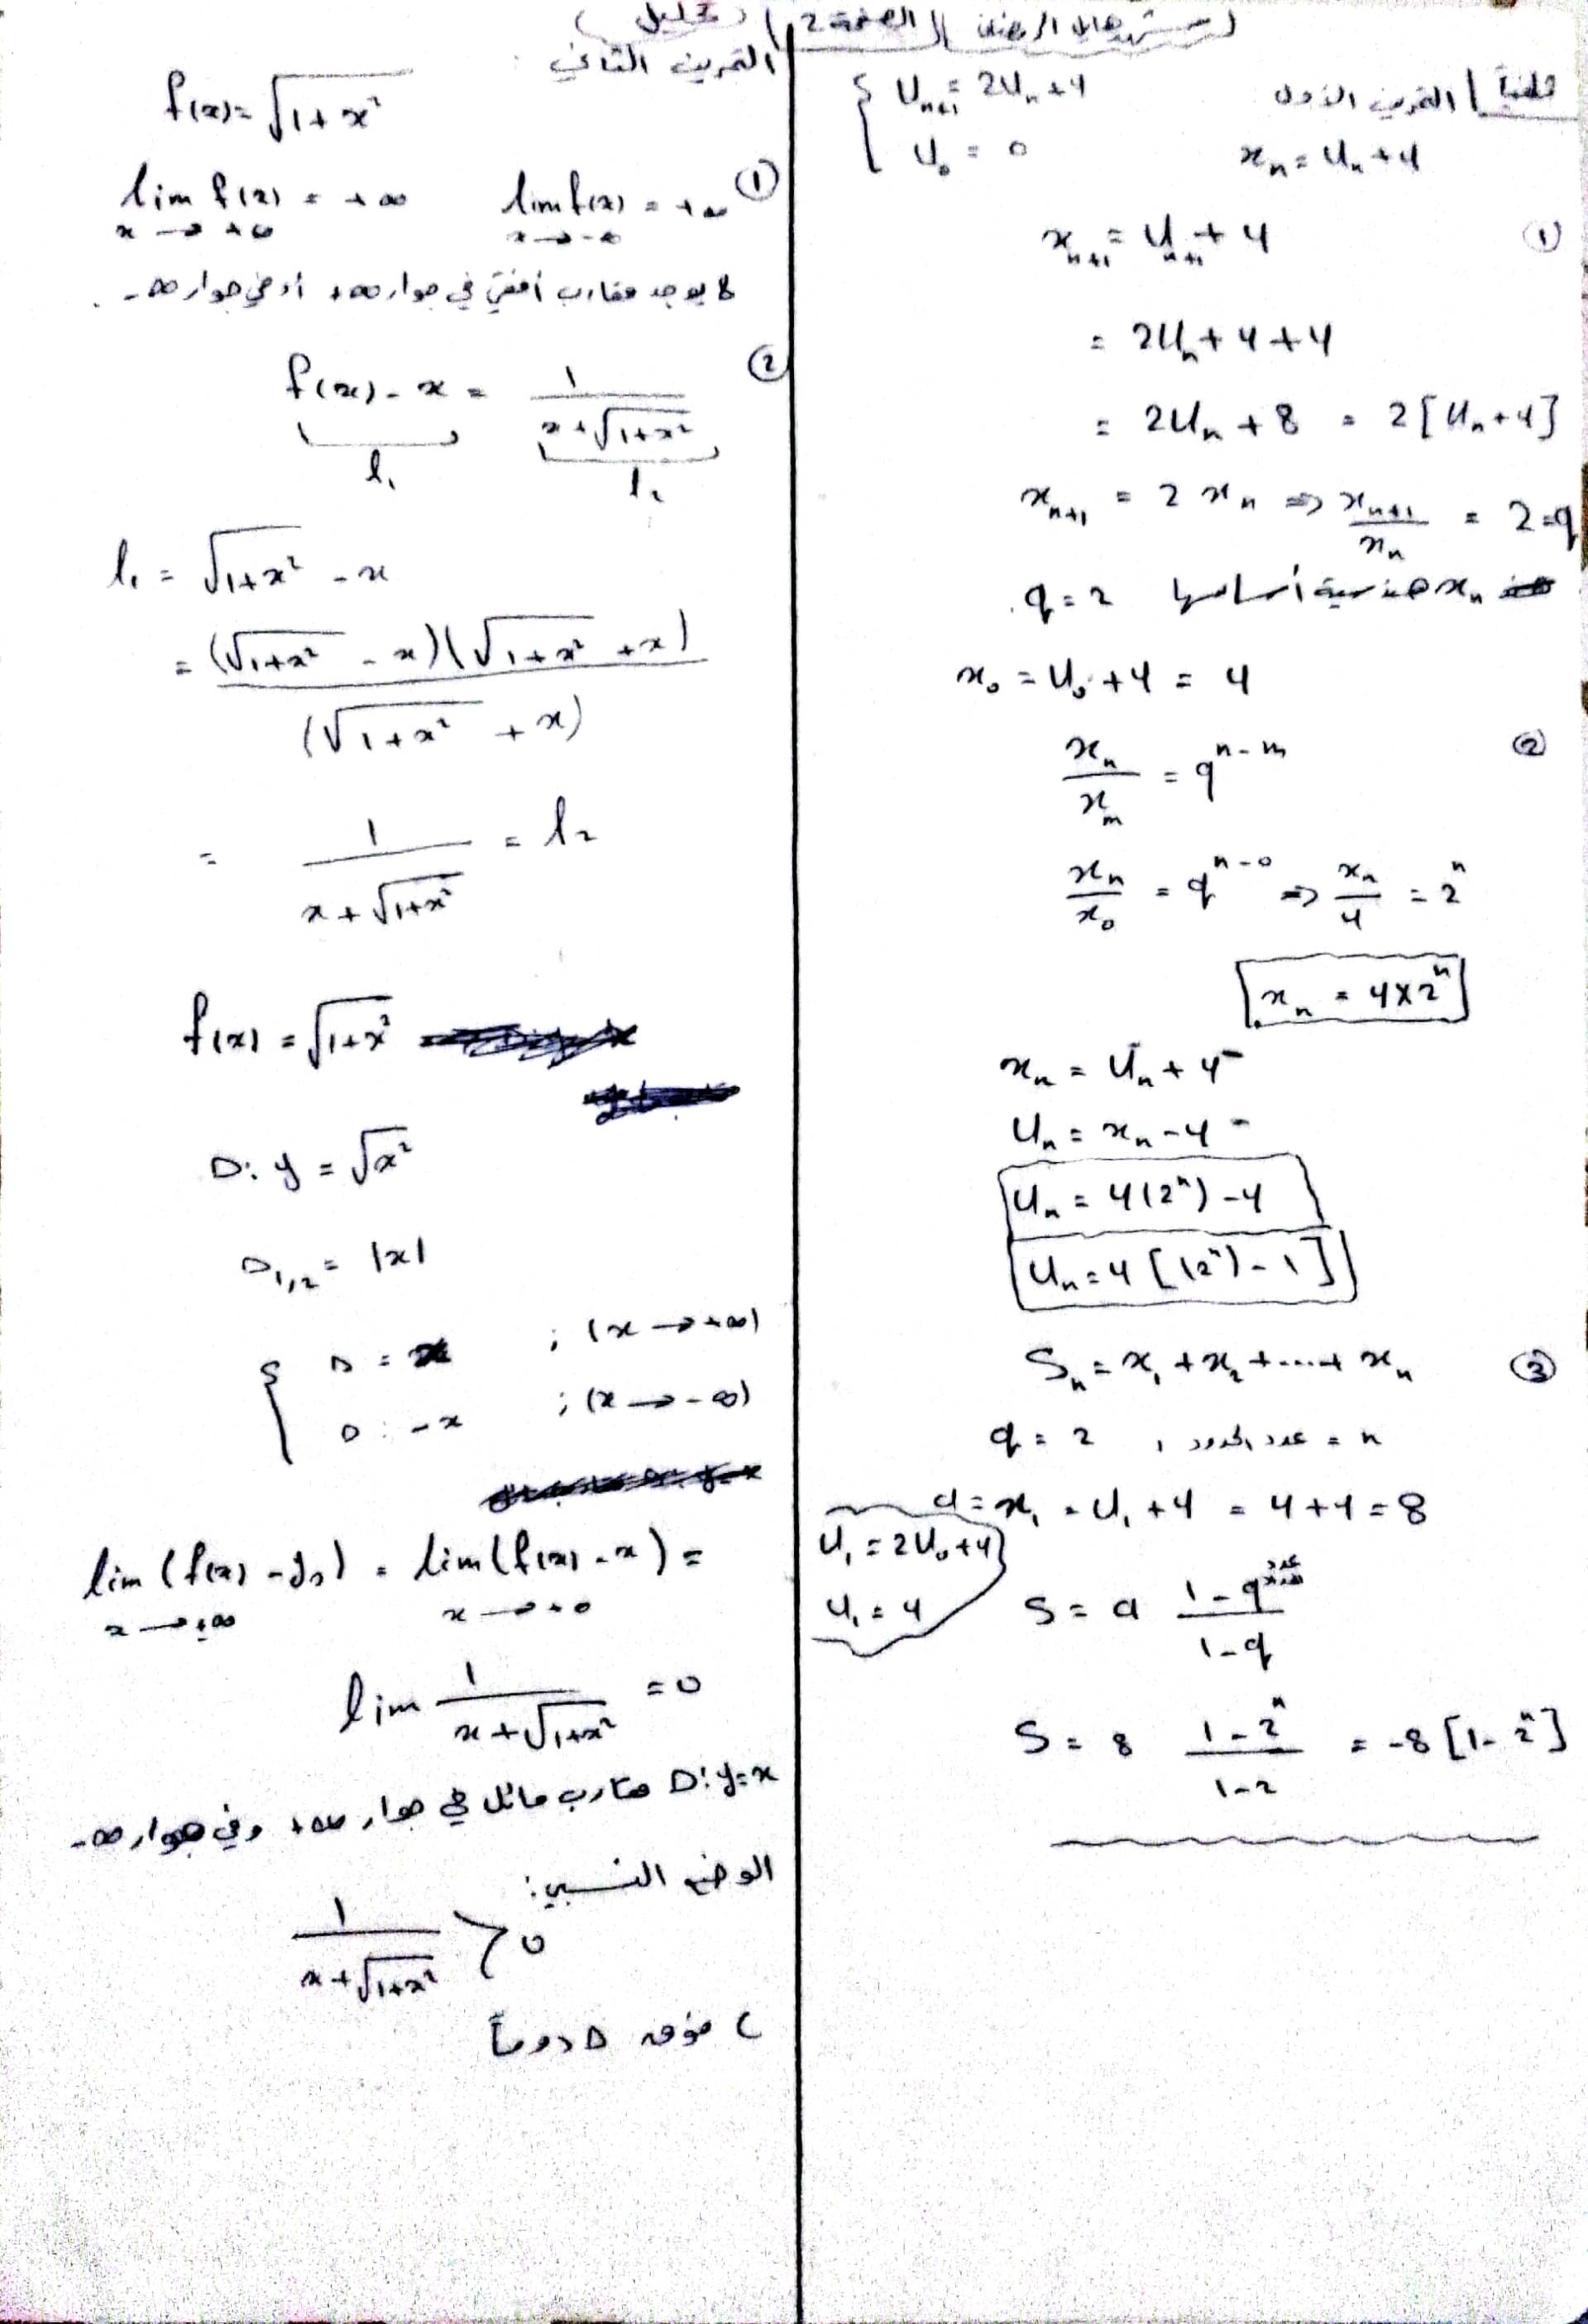 الصفحة 2 ) ( تحليل )
التمرين الأول
{ Uₙ₊₁ = 2Uₙ + 4
U₀ = 0
xₙ = Uₙ + 4
① xₙ₊₁ = Uₙ₊₁ + 4
= 2Uₙ + 4 + 4
= 2Uₙ + 8 = 2[Uₙ + 4]
xₙ₊₁ = 2xₙ ⇒ xₙ₊₁/xₙ = 2 = q
xₙ هندسية أساسها q = 2
x₀ = U₀ + 4 = 4
② xₙ/xₘ = qⁿ⁻ᵐ
xₙ/x₀ = qⁿ⁻⁰ ⇒ xₙ/4 = 2ⁿ
xₙ = 4×2ⁿ
xₙ = Uₙ + 4
Uₙ = xₙ - 4
Uₙ = 4(2ⁿ) - 4
Uₙ = 4[(2ⁿ) - 1]
③ Sₙ = x₁ + x₂ + .... + xₙ
q = 2 , عدد الحدود = n
a = x₁ = U₁ + 4 = 4 + 4 = 8
U₁ = 2U₀ + 4
U₁ = 4
S = a (1 - q^عدد)/(1 - q)
S = 8 (1 - 2ⁿ)/(1 - 2) = -8[1 - 2ⁿ]
التمرين الثاني :
f(x) = √(1+x²)
① lim f(x) = +∞ x → -∞
lim f(x) = +∞ x → +∞
لا يوجد مقارب أفقي في جوار +∞ أو في جوار -∞ .
② f(x) - x = 1/(x+√(1+x²))
l₁ l₂
l₁ = √(1+x²) - x
= (√(1+x²) - x)(√(1+x²) + x)/(√(1+x²) + x)
= 1/(x+√(1+x²)) = l₂
f(x) = √(1+x²)
D: y = √x²
D₁,₂ = |x|
{ D = x ; (x → +∞)
D : -x ; (x → -∞)
lim (f(x) - y_D) = lim (f(x) - x) =
x → +∞ x → +∞
lim 1/(x+√(1+x²)) = 0
D: y = x مقارب مائل في جوار +∞ وفي جوار -∞
الوضع النسبي:
1/(x+√(1+x²)) > 0
C فوق D دوماً